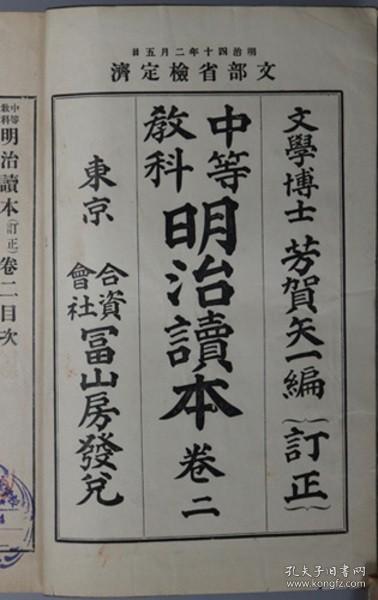 明治四十年二月五日
文部省檢定濟
文學博士 芳賀矢一編(訂正)
中等
教科
明治讀本 卷二
東京
合資
會社
冨山房發兌
中等
教科
明治讀本(訂正)卷二目次
孔夫子旧书网
kongfz.com